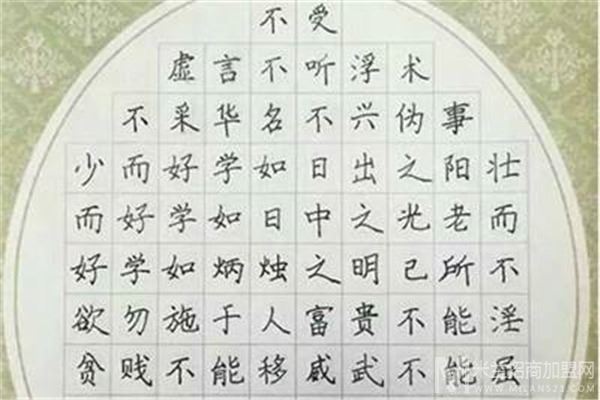 不受
虚言不听浮术
不采华名不兴伪事
少而好学如日出之阳壮
而好学如日中之光老而
好学如炳烛之明己所不
欲勿施于人富贵不能淫
贫贱不能移威武不能屈
招商加盟网
www.milan521.com